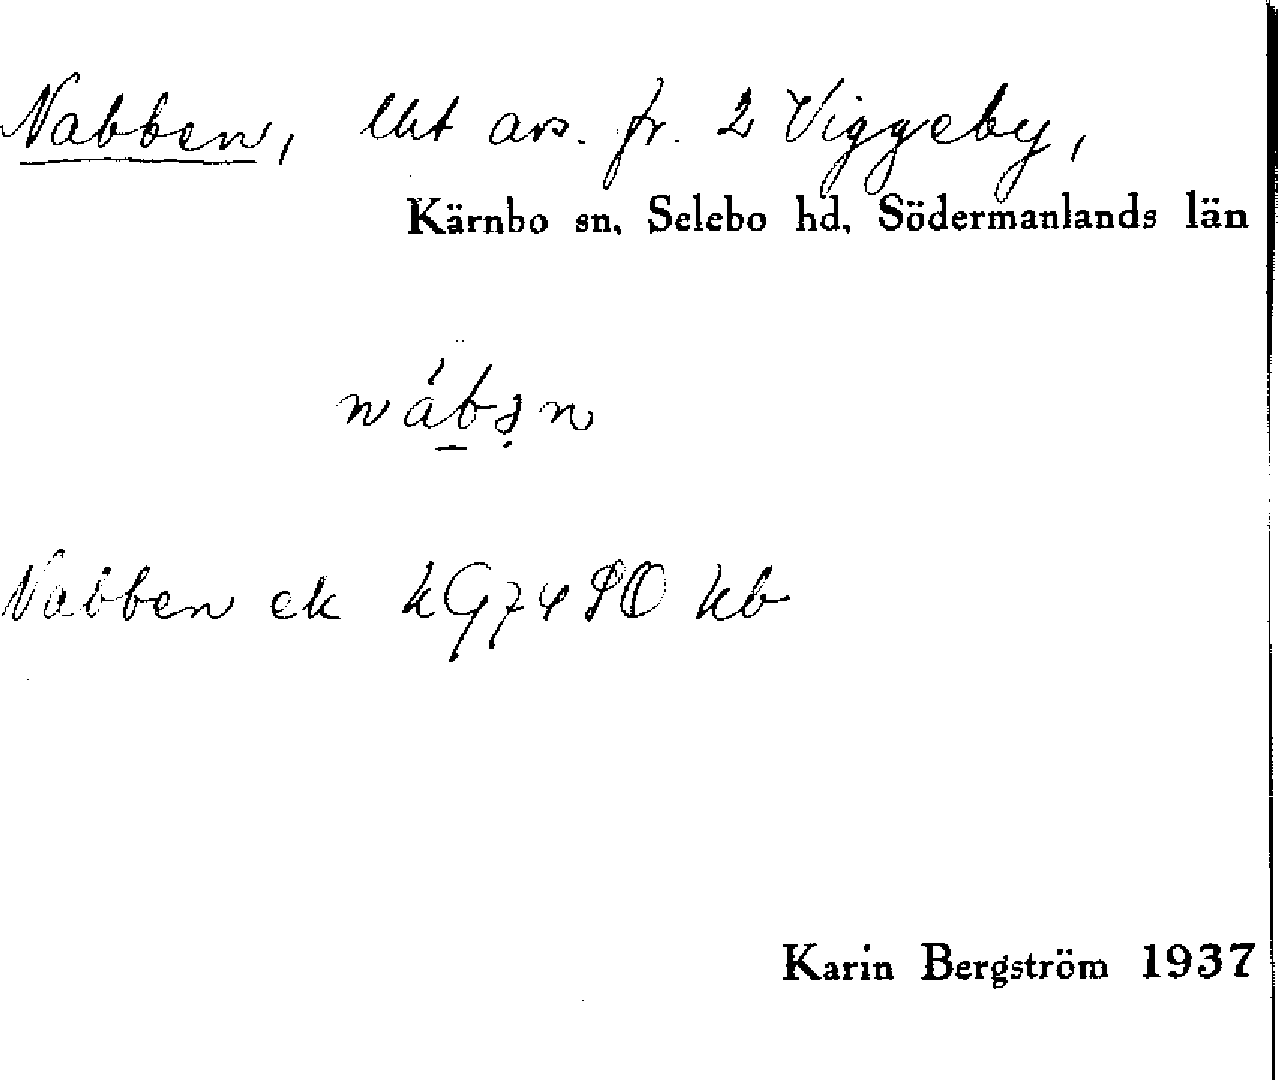 Nabben, lht avs. fr. 2 Viggeby,
Kärnbo sn. Selebo hd. Södermanlands län
Nabben ek
Karin Bergström 1937